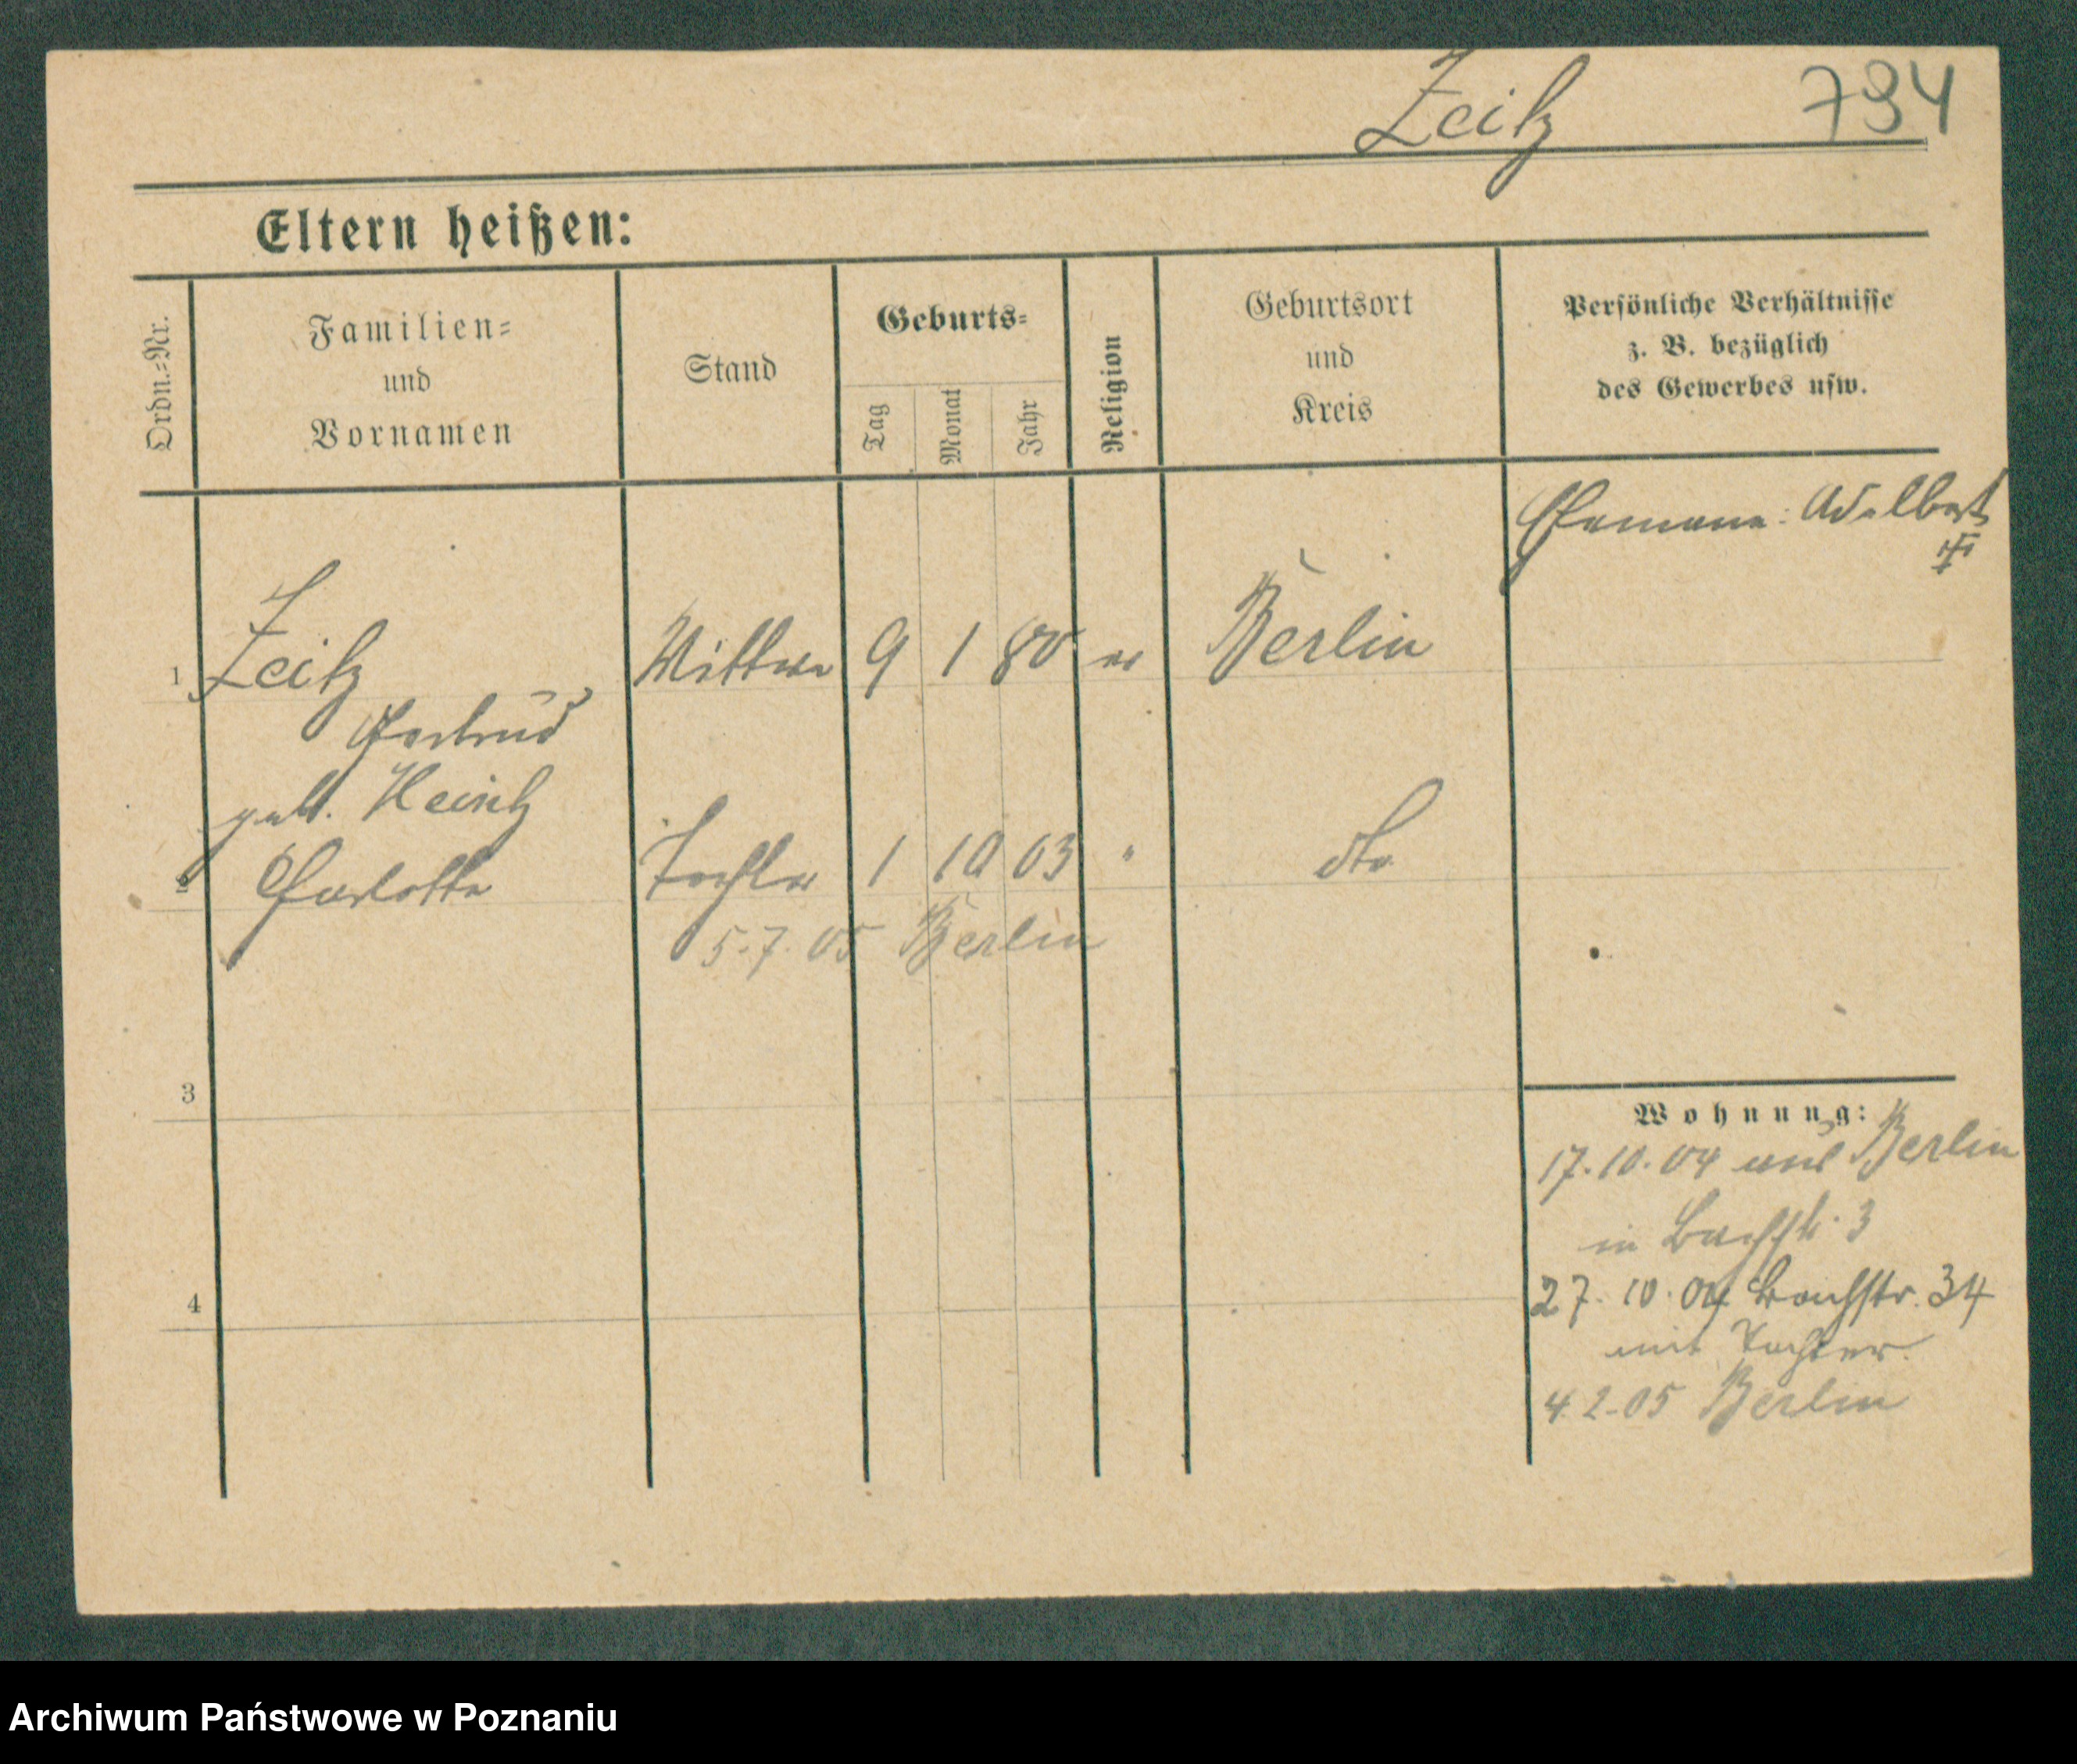 Zeitz 794
Eltern heißen:
Ordn.=Nr.
Familien=
und
Vornamen
Stand
Geburts=
Tag
Monat
Jahr
Religion
Geburtsort
und
Kreis
Persönliche Verhältnisse
z. B. bezüglich
des Gewerbes usw.
Ehemann: Adelbert
1 Zeitz Witwe 9 1 80 ev Berlin
Gertrud
geb.
2 Charlotte Tochter 1 10 03 " dto
5.7.05 Berlin
3
4
Wohnung:
17.10.04 aus Berlin
in Bachstr. 3
27.10.04 Bachstr. 34
mit Tochter.
4.2.05 Berlin
Archiwum Państwowe w Poznaniu